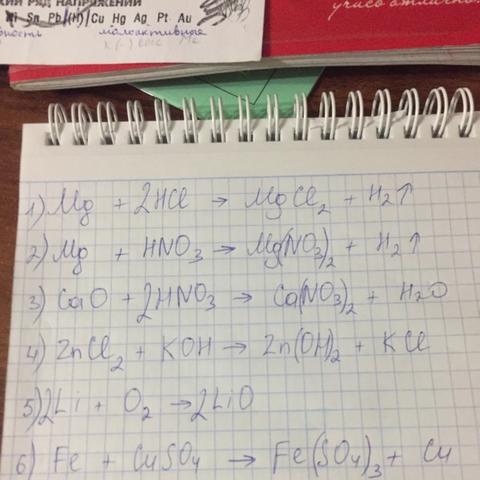 КИЙ РЯД НАПРЯЖЕНИЙ
Ni Sn Pb (H) Cu Hg Ag Pt Au
ность малоактивные
учись отлично!
1) Mg + 2HCl → MgCl₂ + H₂↑
2) Mg + HNO₃ → Mg(NO₃)₂ + H₂↑
3) CaO + 2HNO₃ → Ca(NO₃)₂ + H₂O
4) ZnCl₂ + KOH → Zn(OH)₂ + KCl
5) 2Li + O₂ → 2LiO
6) Fe + CuSO₄ → Fe(SO₄)₃ + Cu